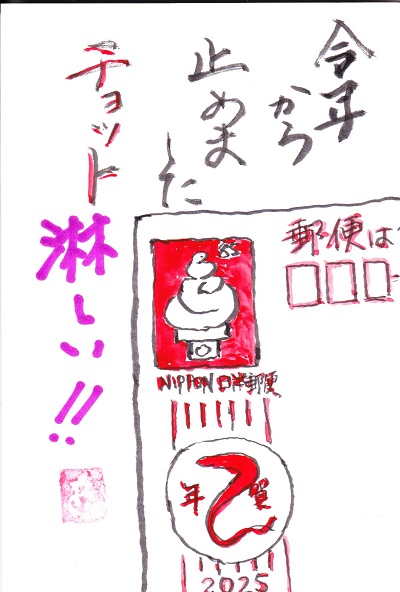 今年
から
止めま
した
チョット
淋しい!!
郵便は
85
NIPPON 日本郵便
年賀
2025